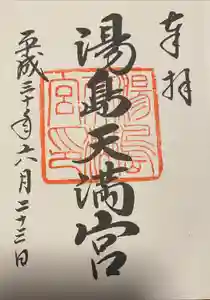 奉拝
湯島天満宮
平成三十年六月二十三日